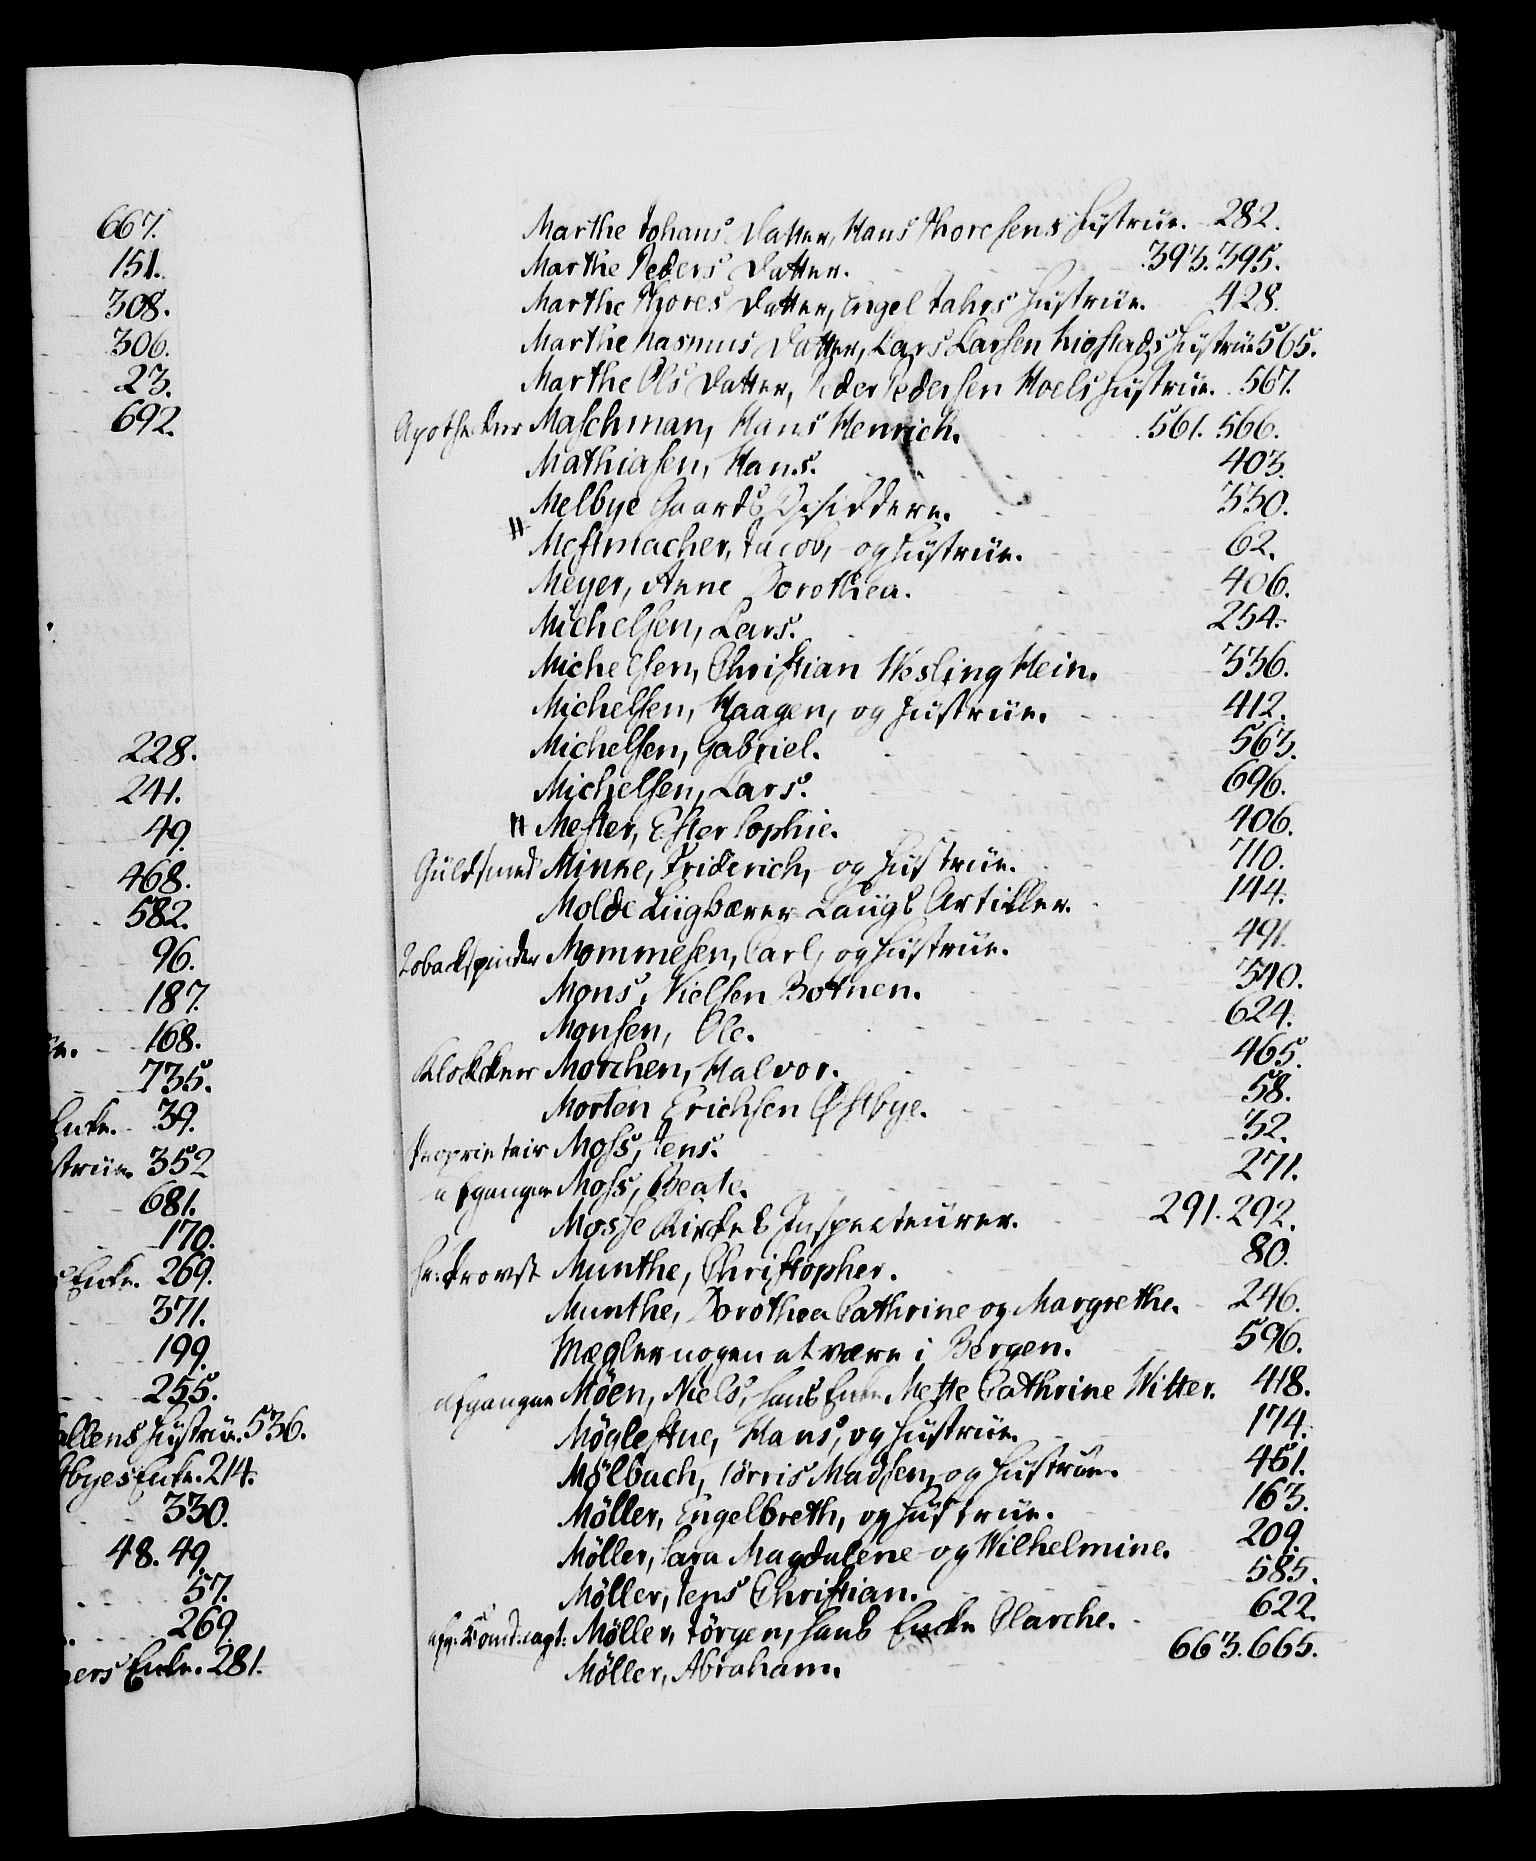 667.
151.
308.
306.
23.
692.
228.
241.
49.
468.
582.
96.
187.
168.
735.
Enke. 39.
352
681.
170.
Enke. 269.
371.
199.
255.
Hustrüe. 536.
Enke. 214.
330.
48. 49.
57.
269
Enke. 281.
Marthe Johans Datter, Hans Thoresens Hustrüe. 282.
Marthe Peders Datter. 393. 395.
Marthe Thores Datter, Engel Jahrs Hustrüe. 428.
Marthe Rasmus Datter, Lars Larsen Hustrüe 565.
Marthe Ols Datter, Peder Pedersen Moels Hustrüe. 567.
Apothecker Maschman, Hans Henrich. 561. 566.
Mathiasen, Hans. 403.
Melbye Gaards Besiddere. 330.
Mestmacher, Jacob, og Hustrüe. 62.
Meyer, Anne Dorothea. 406.
Michelsen, Lars. 254.
Michelsen, Christian Wesling Hein. 336.
Michelsen, Haagen, og Hustrüe. 412.
Michelsen, Gabriel. 563.
Michelsen, Lars. 696.
Mester, Ester Sophie. 406.
Güldsmed Minke, Friderich, og Hustrüe. 710.
Molde Liigbærer-Laugs Artikler. 144.
Tobackspinder Mommesen, Carl, og Hustrüe. 491.
Mons, Nielsen Botnen. 340.
Monsen, Ole. 624.
Klokker Morchen, Halvor. 465.
Morten Erichsen Østbye. 58.
Proprietair Moss, Jens. 32.
afgangne Moss, Beate. 271.
Mosse Kirkes Inspecteurer. 291. 292.
Hr: Provst Munthe, Christopher. 80.
Munthe, Dorothea Cathrine og Margrethe. 246.
Mægler nogen at være i Bergen. 596.
afgangne Möen, Niels, hans Enke Mette Cathrine Witter. 418.
Möglestue, Hans, og Hustrüe. 174.
Mölbach, Törris Madsen, og Hustrüe. 451.
Möller, Engelbreth, og Hustrüe. 163.
Möller, Sara Magdalene og Wilhelmine. 209.
Möller, Jens Christian. 585.
Möller, Jörgen, hans Enke Clarche. 622.
Möller, Abraham. 663. 665.